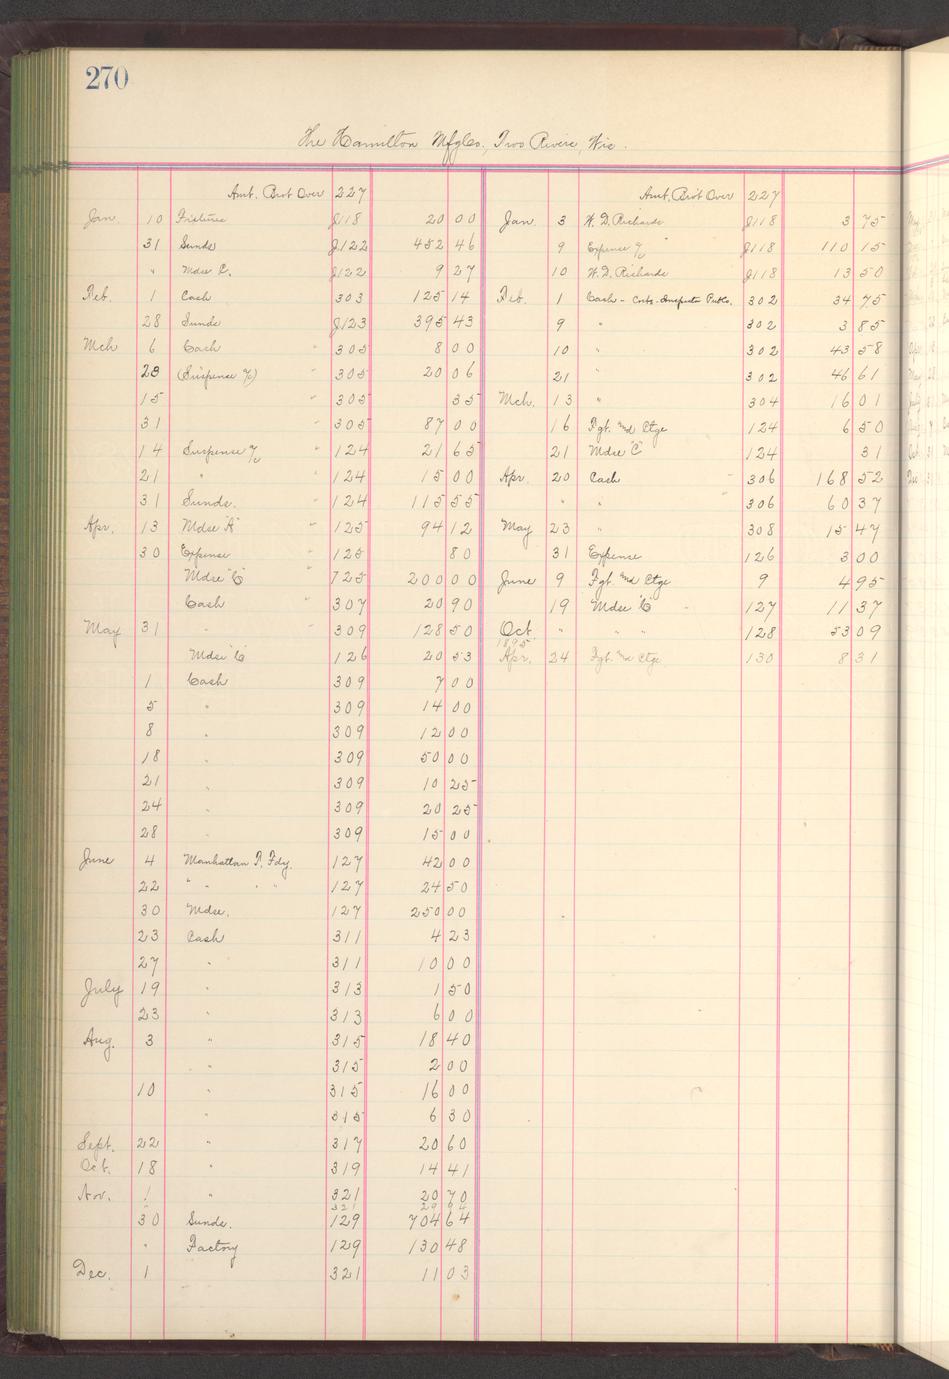 270
The Hamilton Mfg Co., Two Rivers, Wis.
Amt. Brot Over 227
Jan. 10 Fixtures J118 20 00
31 Sunds J122 452 46
" Mdse C. J122 9 27
Feb. 1 Cash 303 125 14
28 Sunds J123 395 43
Mch 6 Cash " 305 8 00
23 (Suspense a/c) " 305 20 06
15 " 305 35
31 " 305 87 00
14 Suspense a/c " 124 21 65
21 " " 124 15 00
31 Sunds. " 124 115 55
Apr. 13 Mdse "A" " 125 94 12
30 Expense " 125 80
Mdse "C" " 125 200 00
Cash " 307 20 90
May 31 " " 309 128 50
Mdse "C" 126 20 53
1 Cash 309 7 00
5 " 309 14 00
8 " 309 12 00
18 " 309 50 00
21 " 309 10 25
24 " 309 20 25
28 " 309 15 00
June 4 Manhattan T. Fdy. 127 42 00
22 " " " " 127 24 50
30 Mdse. 127 250 00
23 Cash 311 4 23
27 " 311 10 00
July 19 " 313 1 50
23 " 313 6 00
Aug. 3 " 315 18 40
315 2 00
10 " 315 16 00
" 315 6 30
Sept. 22 " 317 20 60
Oct. 18 " 319 14 41
Nov. 1 " 321 20 70
" 321 29 64
30 Sunds. 129 704 64
" Factory 129 130 48
Dec. 1 321 11 03
Amt. Brot Over 227
Jan. 3 W. D. Richards J118 3 75
9 Expense a/c " J118 110 15
10 W. D. Richards J118 13 50
Feb. 1 Cash - 302 34 75
9 " 302 3 85
10 " 302 43 58
21 " 302 46 61
Mch. 13 " 304 16 01
16 Fgt. and Ctge 124 6 50
21 Mdse "C" 124 31
Apr. 20 Cash " 306 168 52
" " 306 60 37
May 23 " 308 15 47
31 Expense 126 3 00
June 9 Fgt. and Ctge 9 4 95
19 Mdse "C" " 127 11 37
Oct. " " " 128 53 09
1895
Apr. 24 Fgt. and Ctge 130 8 31